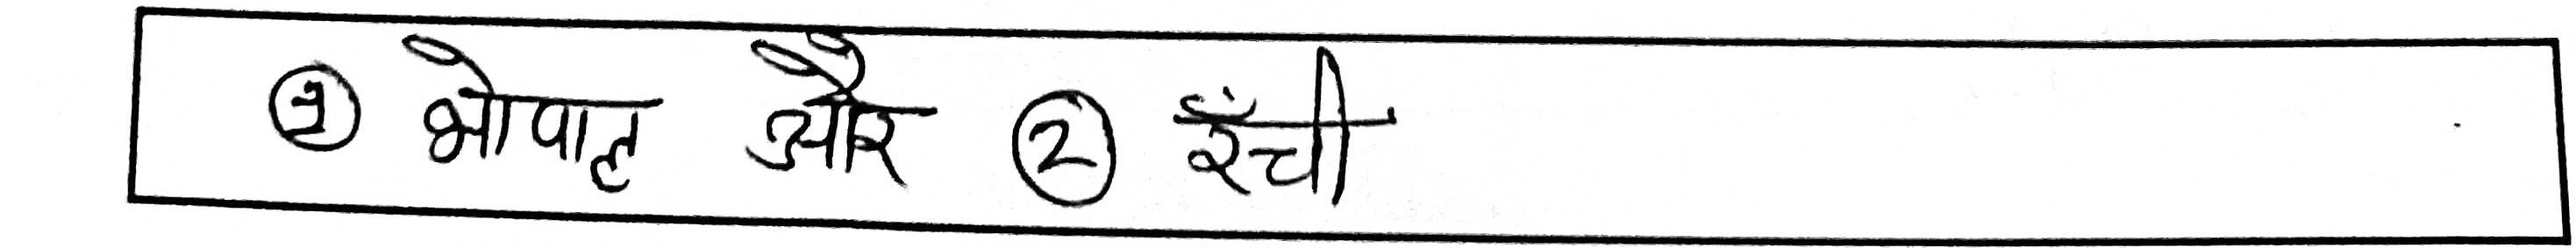 ① भोपाल और ② रँची